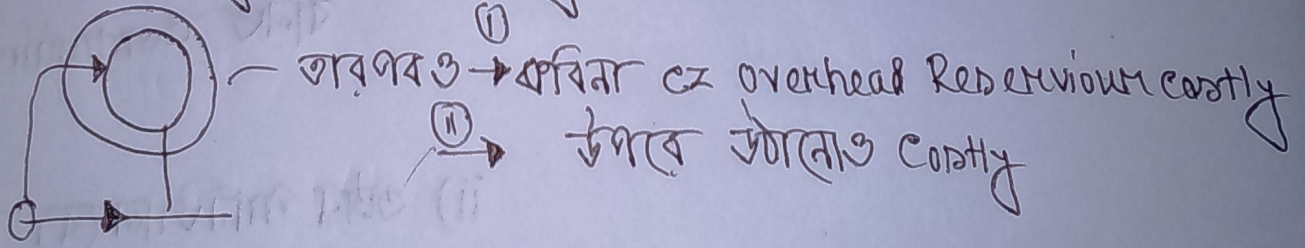 তারপরও ① → করিনা cz overhead Reserviour costly
② → উপরে উঠানোও costly